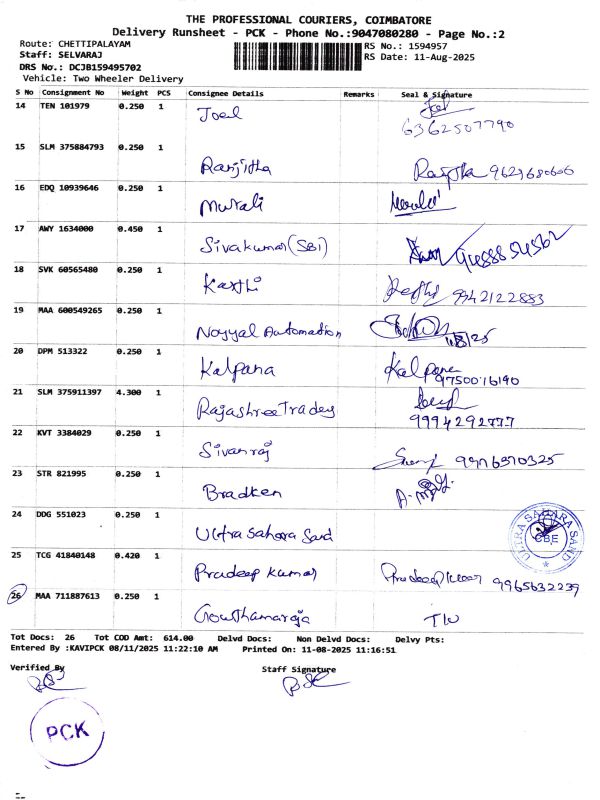 THE PROFESSIONAL COURIERS, COIMBATORE
Delivery Runsheet - PCK - Phone No.:9047080280 - Page No.:2
Route: CHETTIPALAYAM
RS No.: 1594957
Staff: SELVARAJ
RS Date: 11-Aug-2025
DRS No.: DCJB159495702
Vehicle: Two Wheeler Delivery
S No Consignment No Weight PCS Consignee Details Remarks Seal & Signature
14 TEN 101979 0.250 1 Joel Joel
6362507790
15 SLM 375884793 0.250 1
Ranjitha 9629680606
16 EDQ 10939646 0.250 1 Murali
17 AWY 1634000 0.450 1
Sivakumar (SBI)
18 SVK 60565480 0.250 1 Karthi
9942122883
19 MAA 600549265 0.250 1
Noyyal Automation
20 DPM 513322 0.250 1 Kalpana Kalpana
9750016190
21 SLM 375911397 4.300 1
Rajashree Tradey
9994292777
22 KVT 3384029 0.250 1
Sivanraj 9976570325
23 STR 821995 0.250 1
Bradken
24 DDG 551023 0.250 1
Ultra Sahara Sand
ULTRA SAHARA SAND
CBE
25 TCG 41840148 0.420 1
Pradeep Kumar 9965632239
26 MAA 711887613 0.250 1
Gouthamaraja
Tot Docs: 26 Tot COD Amt: 614.00 Delvd Docs: Non Delvd Docs: Delvy Pts:
Entered By :KAVIPCK 08/11/2025 11:22:10 AM Printed On: 11-08-2025 11:16:51
Verified By
Staff Signature
PCK